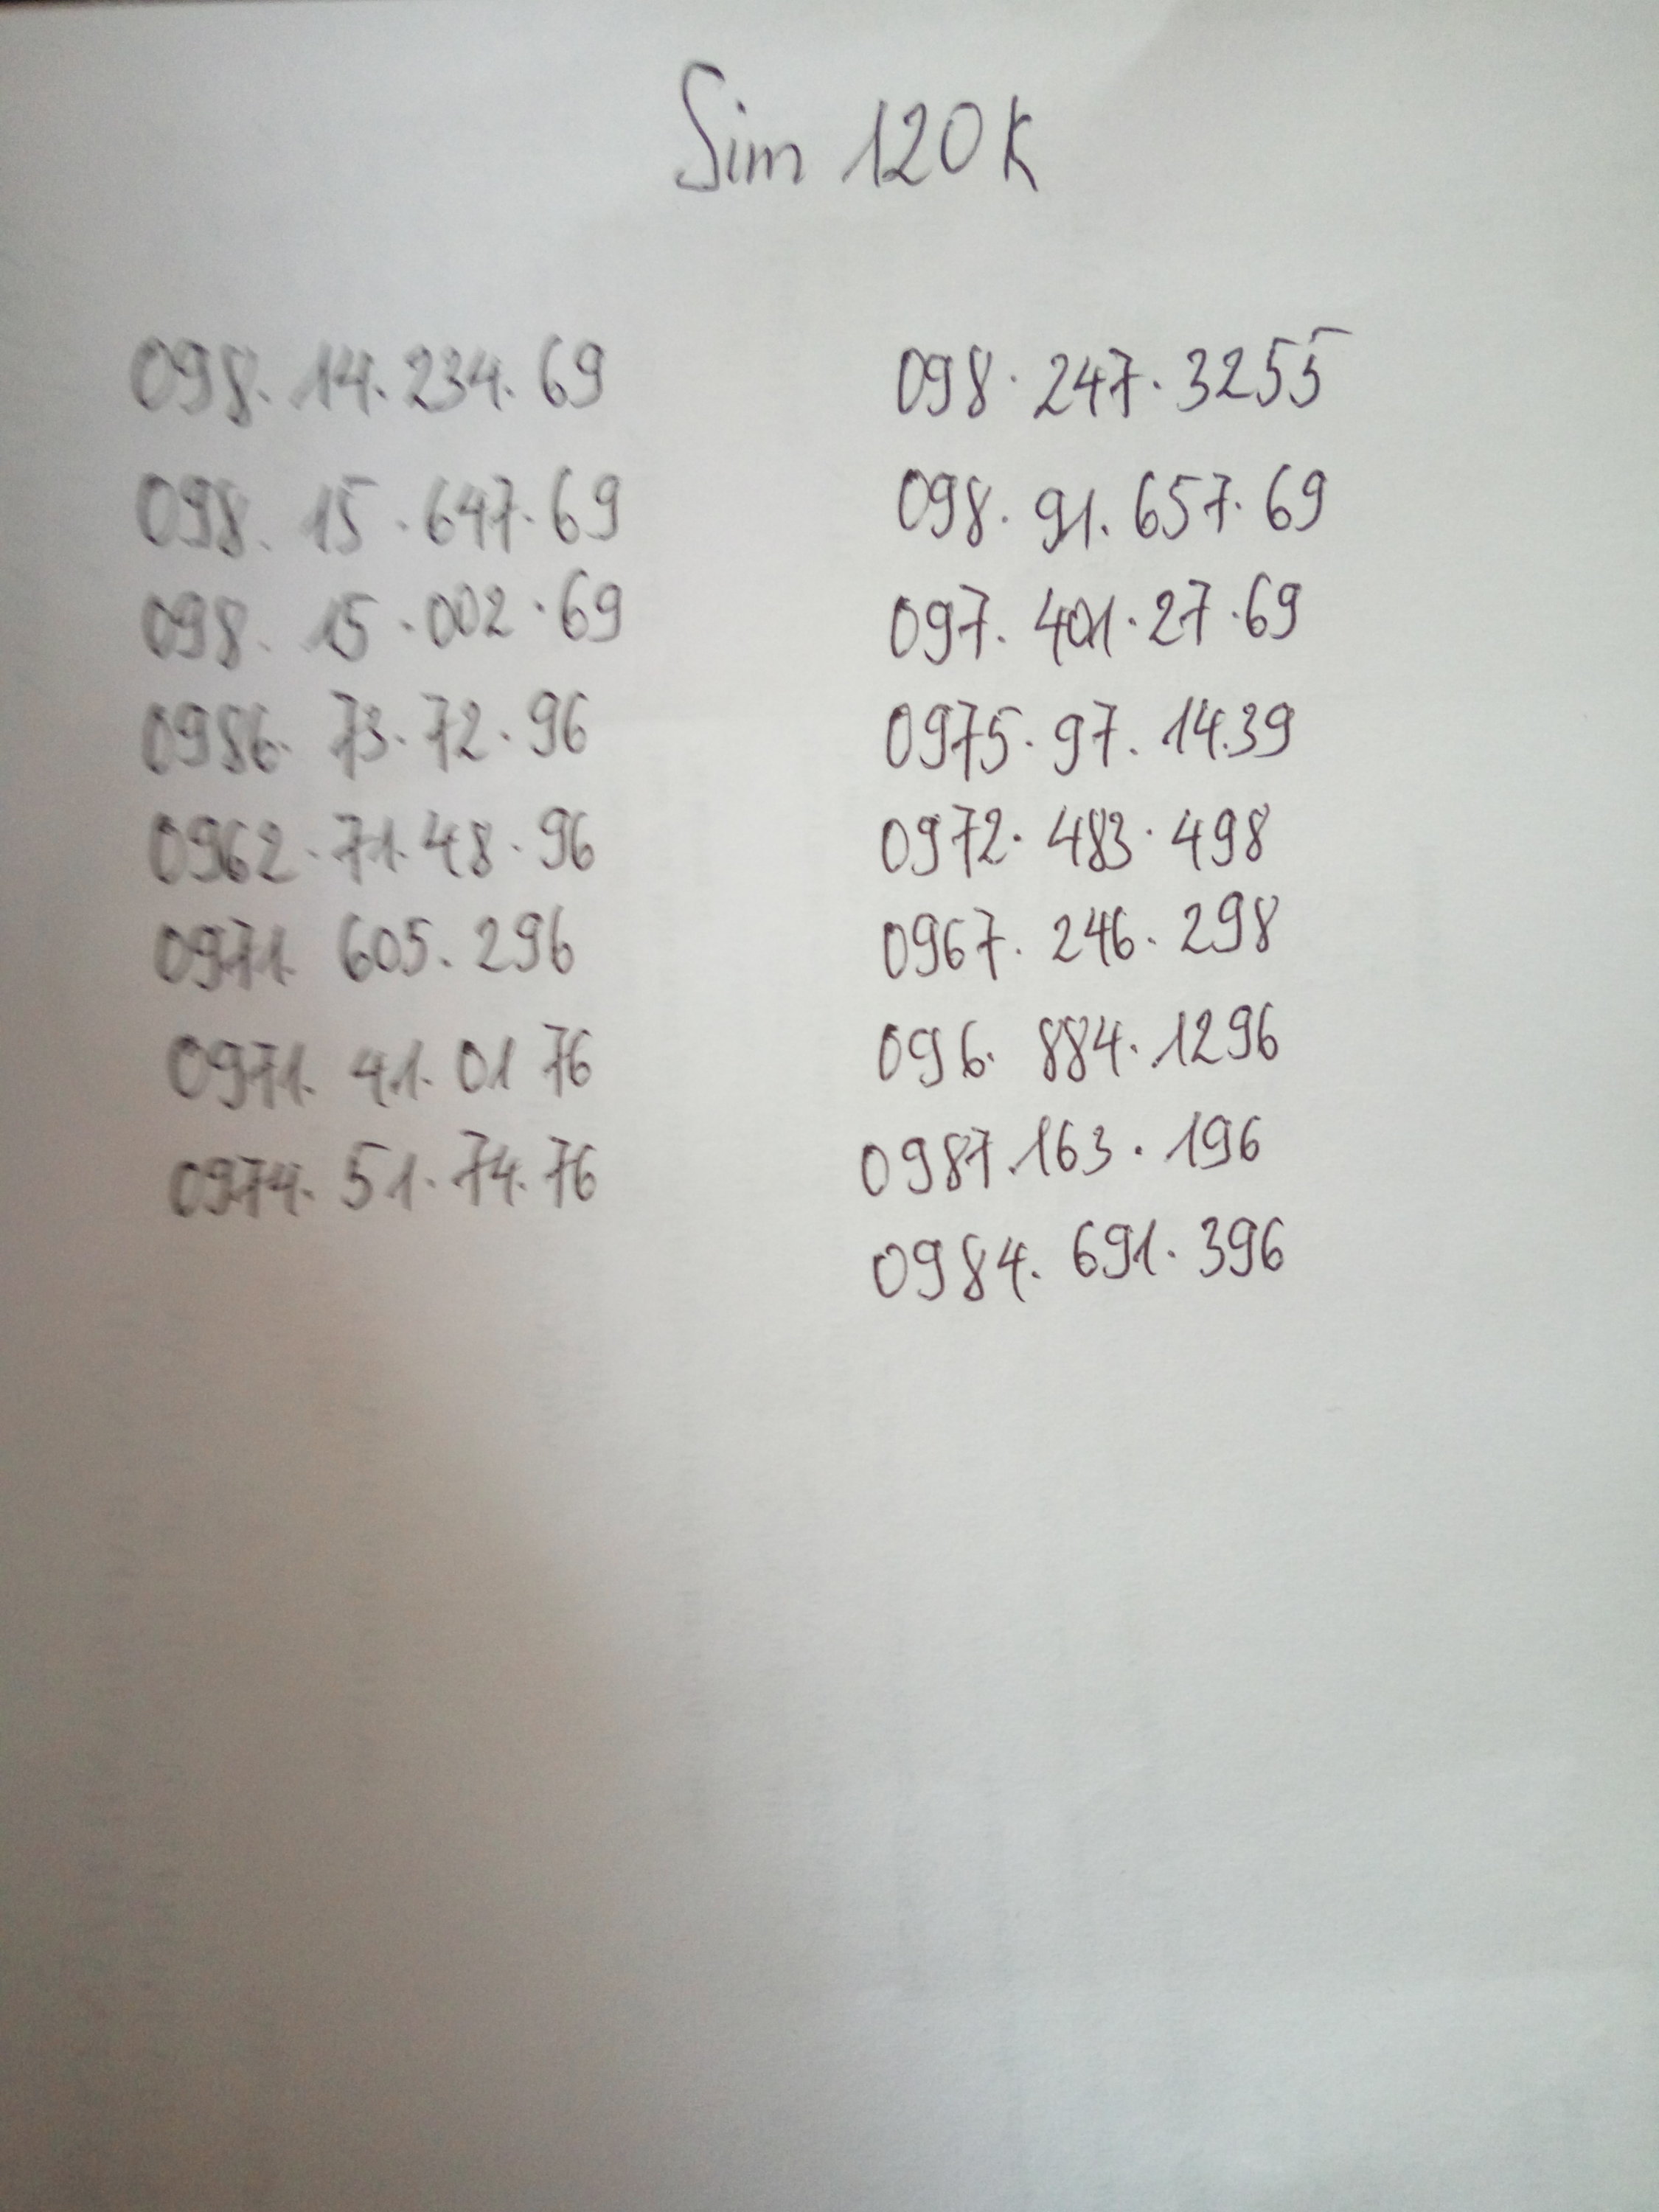 Sim 120K
098. 14. 234. 69
098. 15. 647. 69
098. 15. 002. 69
0986. 73. 72. 96
0962. 71. 48. 96
0971. 605. 296
0971. 41. 01 76
0974. 51. 74. 76
098. 247. 3255
098. 91. 657. 69
097. 401. 27. 69
0975. 97. 14.39
0972. 483. 498
0967. 246. 298
096. 884. 1296
0987. 163. 196
0984. 691. 396